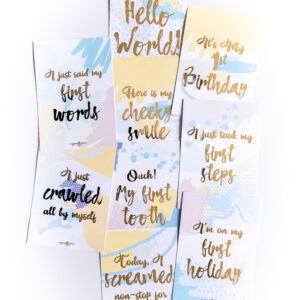 I just said my
first
words
I just
crawled
all by myself
Hello
World!
Here is my
cheeky
smile
Ouch!
My first
tooth
Today, I
screamed
non-stop for
It's My
1st
Birthday
I just took my
first
steps
I'm on my
first
holiday